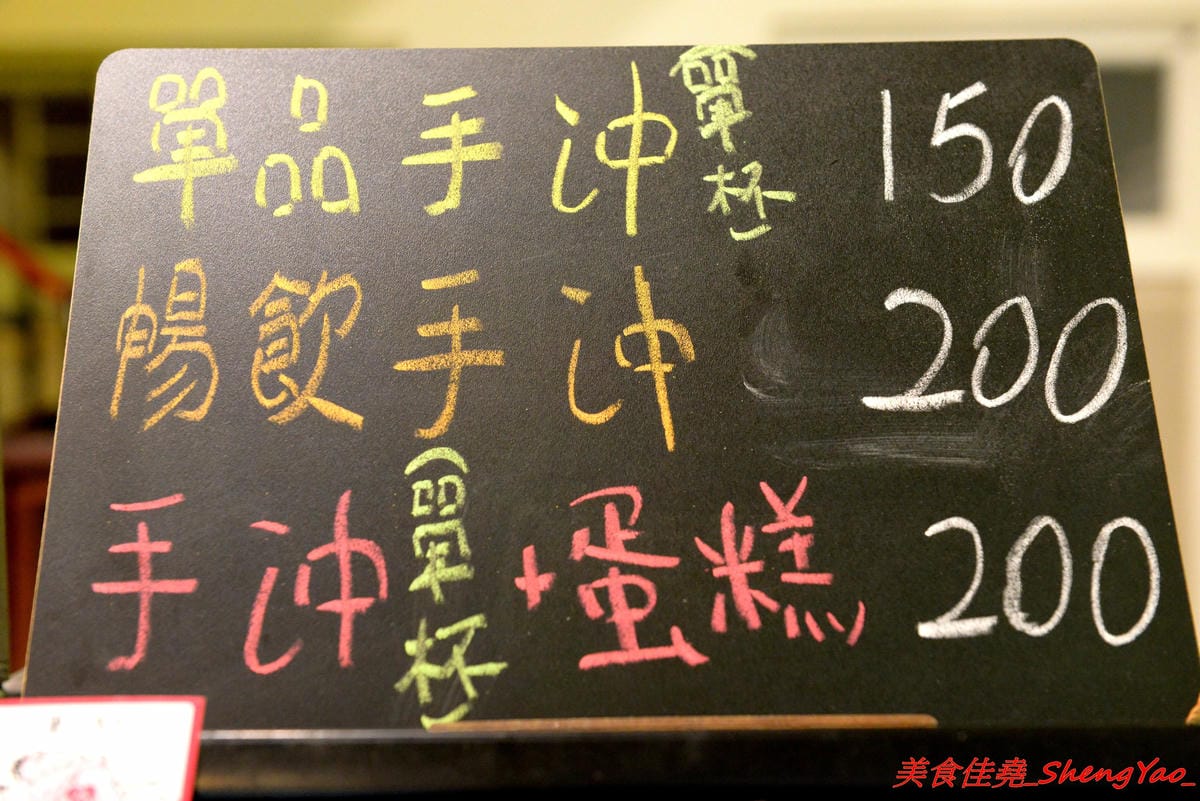 單品手沖(單杯) 150
暢飲手沖 200
手沖(單杯)+蛋糕 200
美食佳堯_ShengYao_